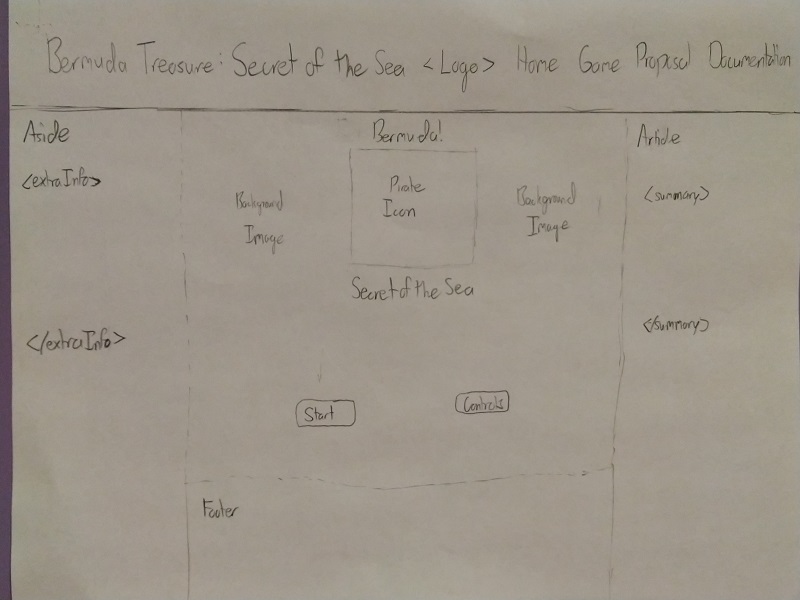 Bermuda Treasure: Secret of the Sea <Logo> Home Game Proposal Documentation
Aside
<extraInfo>
</extraInfo>
Bermuda!
Pirate
Icon
Background
Image
Background
Image
Secret of the Sea
Start
Controls
Article
<summary>
</summary>
Footer